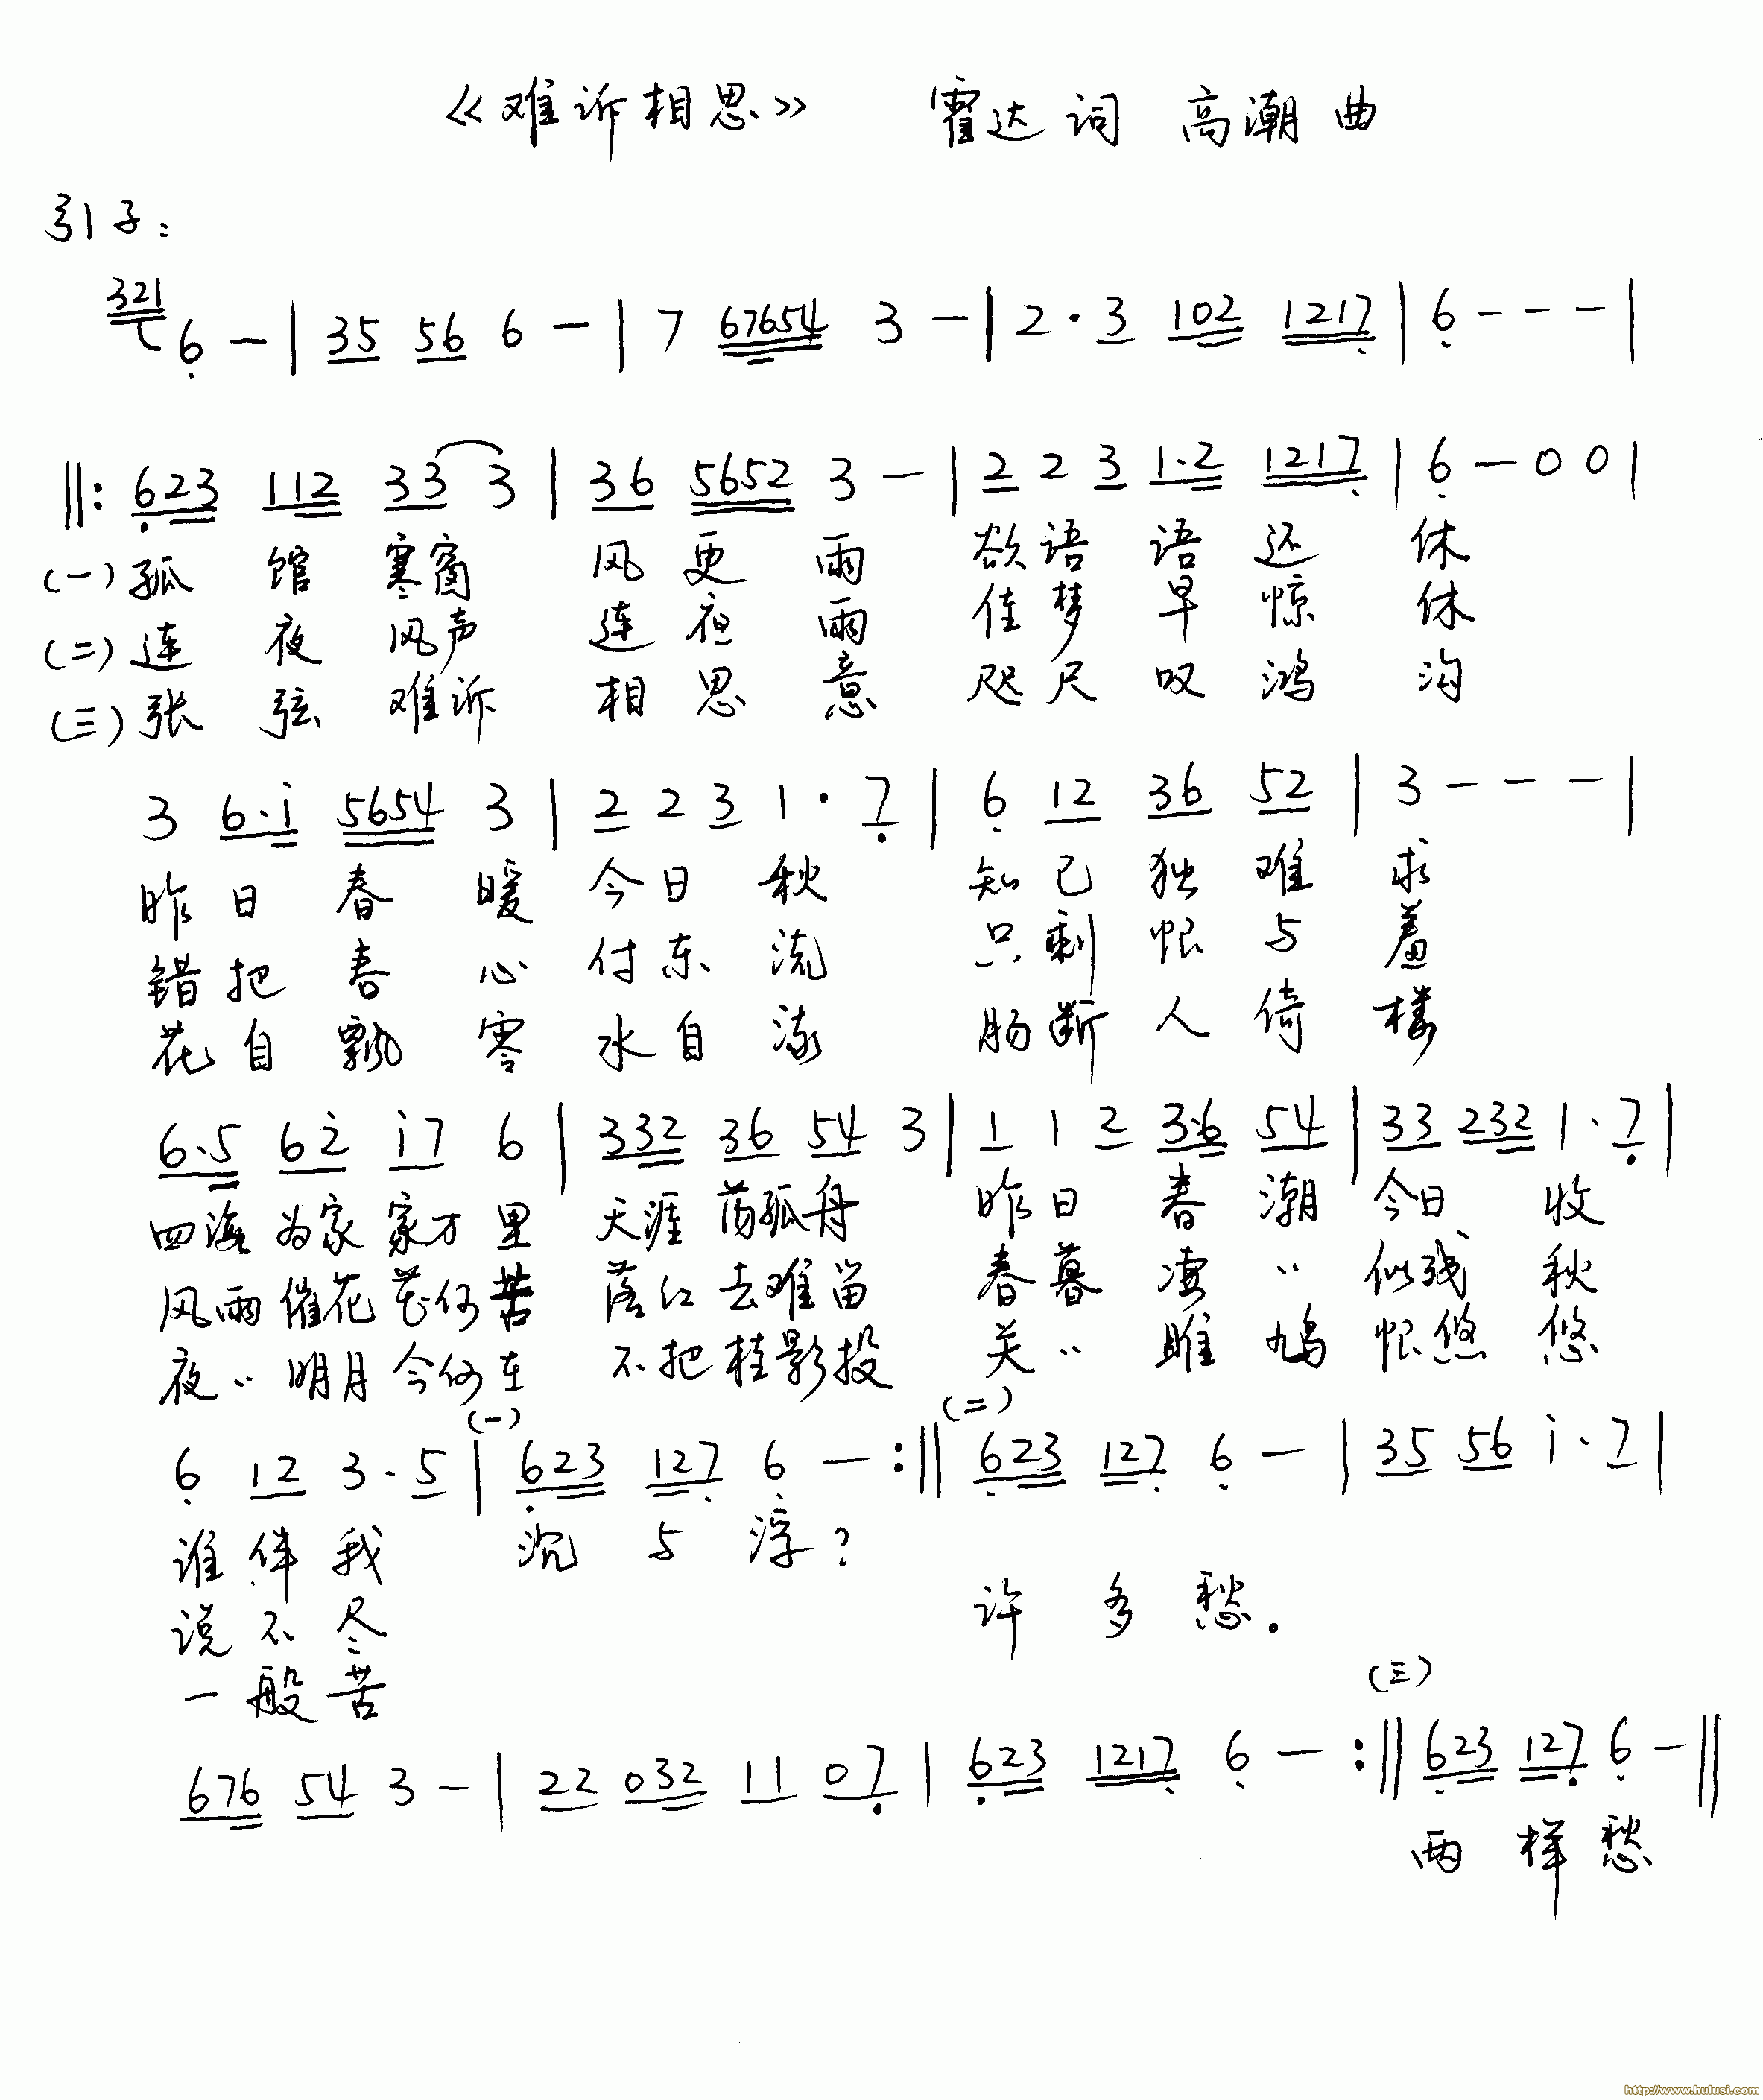 《难诉相思》 霍达词 高潮曲
引子:
321 6 — | 35 56 6 — | 7 67654 3 — | 2·3 102 1217 | 6 - - - |
‖: 623 112 33 3 | 36 5652 3 — | 2 2 3 1·2 1217 | 6 — 0 0 |
(一)孤 馆 寒窗 风 更 雨 欲语 语 还 休
(二)连 夜 风声 连 夜 雨 佳梦 早 惊 休
(三)张 弦 难诉 相 思 意 咫尺 叹 鸿 沟
3 6·i 5654 3 | 2 2 3 1·7 | 6 12 36 52 | 3 - - - |
昨 日 春 暖 今日 秋 知 己 独 难 求
错 把 春 心 付东 流 只 剩 恨 与 羞
花 自 飘 零 水自 流 肠断 人 倚 楼
6·5 6i i7 6 | 332 36 54 3 | 1 1 2 3·6 54 | 33 232 1·7 |
四海 为家 家万 里 天涯 荡孤舟 昨日 春 潮 今日 收
风雨 催花 花何 苦 落红 去难留 春暮 凄 〃 似残 秋
夜〃 明月 今何 在 不把 桂影投 关〃 雎 鸠 恨悠 悠
(一) (二)
6 12 3·5 | 623 127 6 — :‖ 623 127 6 — | 35 56 i·7 |
谁 伴 我 沉 与 浮?
说 不 尽 许 多 愁。
一 般 苦
(三)
676 54 3 — | 22 032 11 07 | 623 1217 6 — :‖ 623 127 6 — ‖
两 样 愁
http://www.hulusi.com